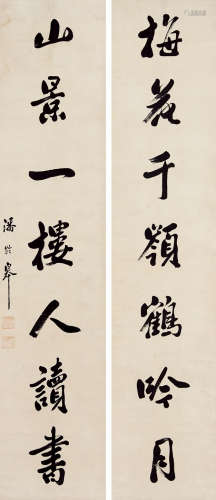 梅花千嶺鶴吟月
山景一樓人讀書
潘齡皋